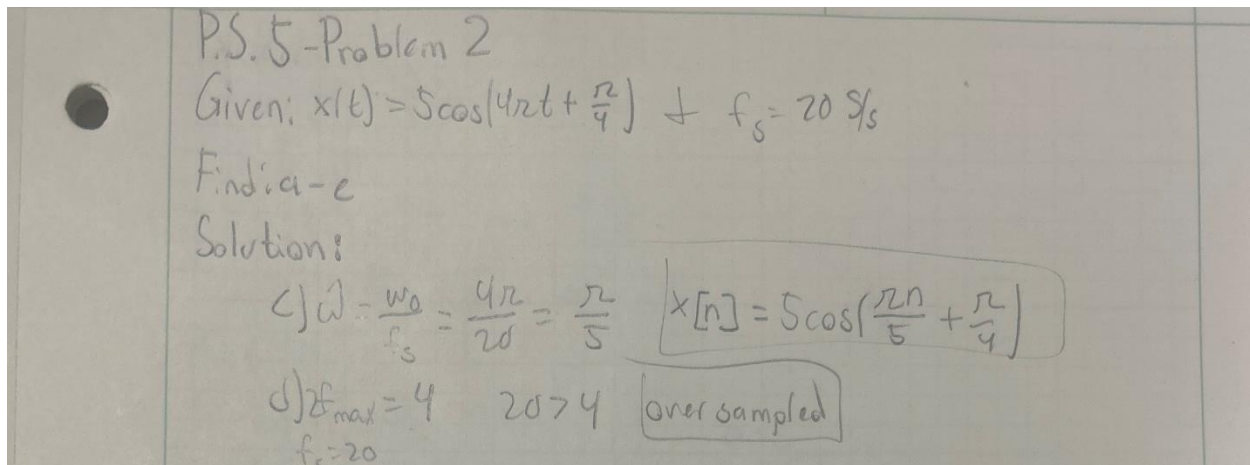 P.S. 5-Problem 2
Given: x(t) = 5cos(4πt + π/4) + f_s = 20 S/s
Find: a-e
Solution:
c) ω̂ = ω_0/f_s = 4π/20 = π/5 x[n] = 5cos(πn/5 + π/4)
d) 2f_max = 4 20 > 4 over sampled
f_s = 20